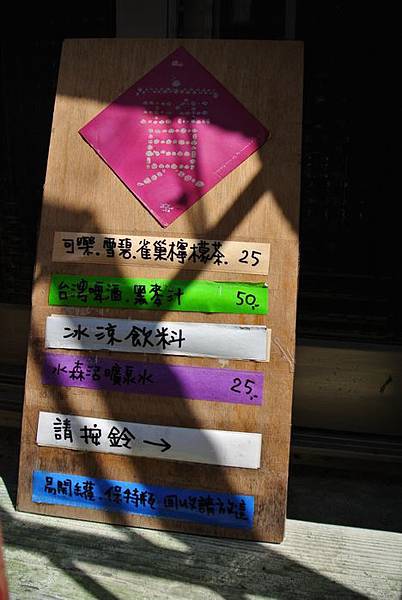 寶
可樂.雪碧.雀巢檸檬茶. 25
台灣啤酒.黑麥汁 50.-
冰涼飲料
水森活礦泉水 25.-
請按鈴→
易開罐.保特瓶.回收請放這